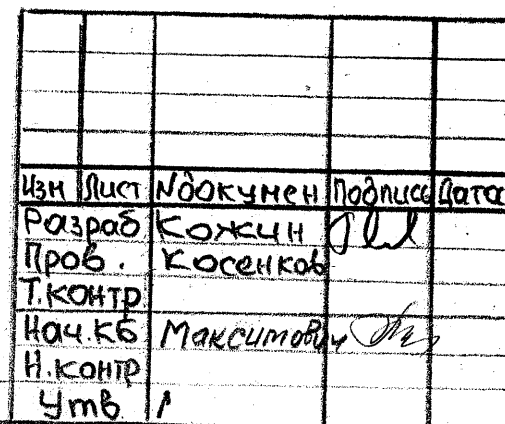 Изн Лист Nдокумен Подпись Дата
Разраб Кожин
Пров. Косенков
Т.контр
Нач.КБ Максимович
Н.контр
Утв